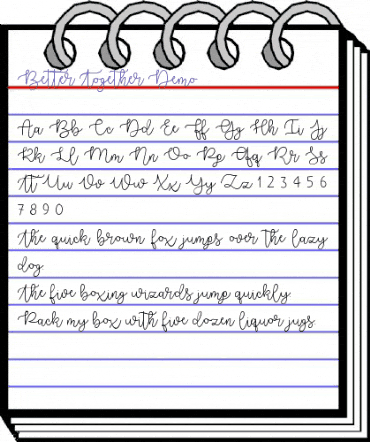 Better Together Demo
Aa Bb Cc Dd Ee Ff Gg Hh Ii Jj
Kk Ll Mm Nn Oo Pp Qq Rr Ss
Tt Uu Vv Ww Xx Yy Zz 1 2 3 4 5 6
7 8 9 0
the quick brown fox jumps over the lazy
dog.
the five boxing wizards jump quickly
Pack my box with five dozen liquor jugs.